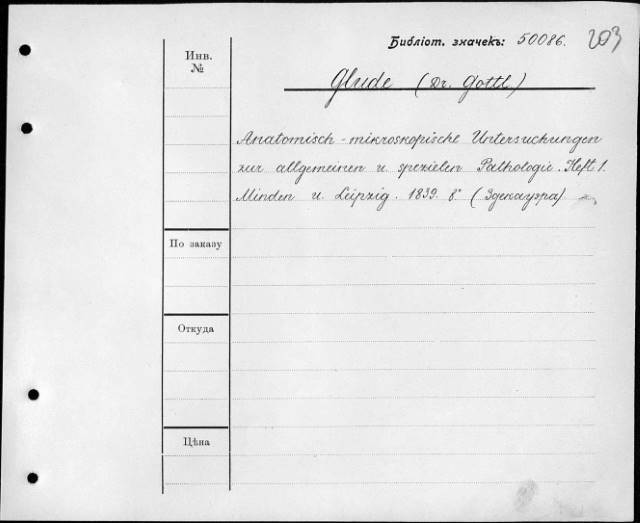 Библіот. значекъ: 50086. 203
Инв.
№
Glude (Dr. Gottl.)
Anatomisch-mikroskopische Untersuchungen
zur allgemeinen u. spezielen Pathologie. Heft 1.
Minden u. Leipzig. 1839. 8° (Здекауэра)
По заказу
Откуда
Цѣна